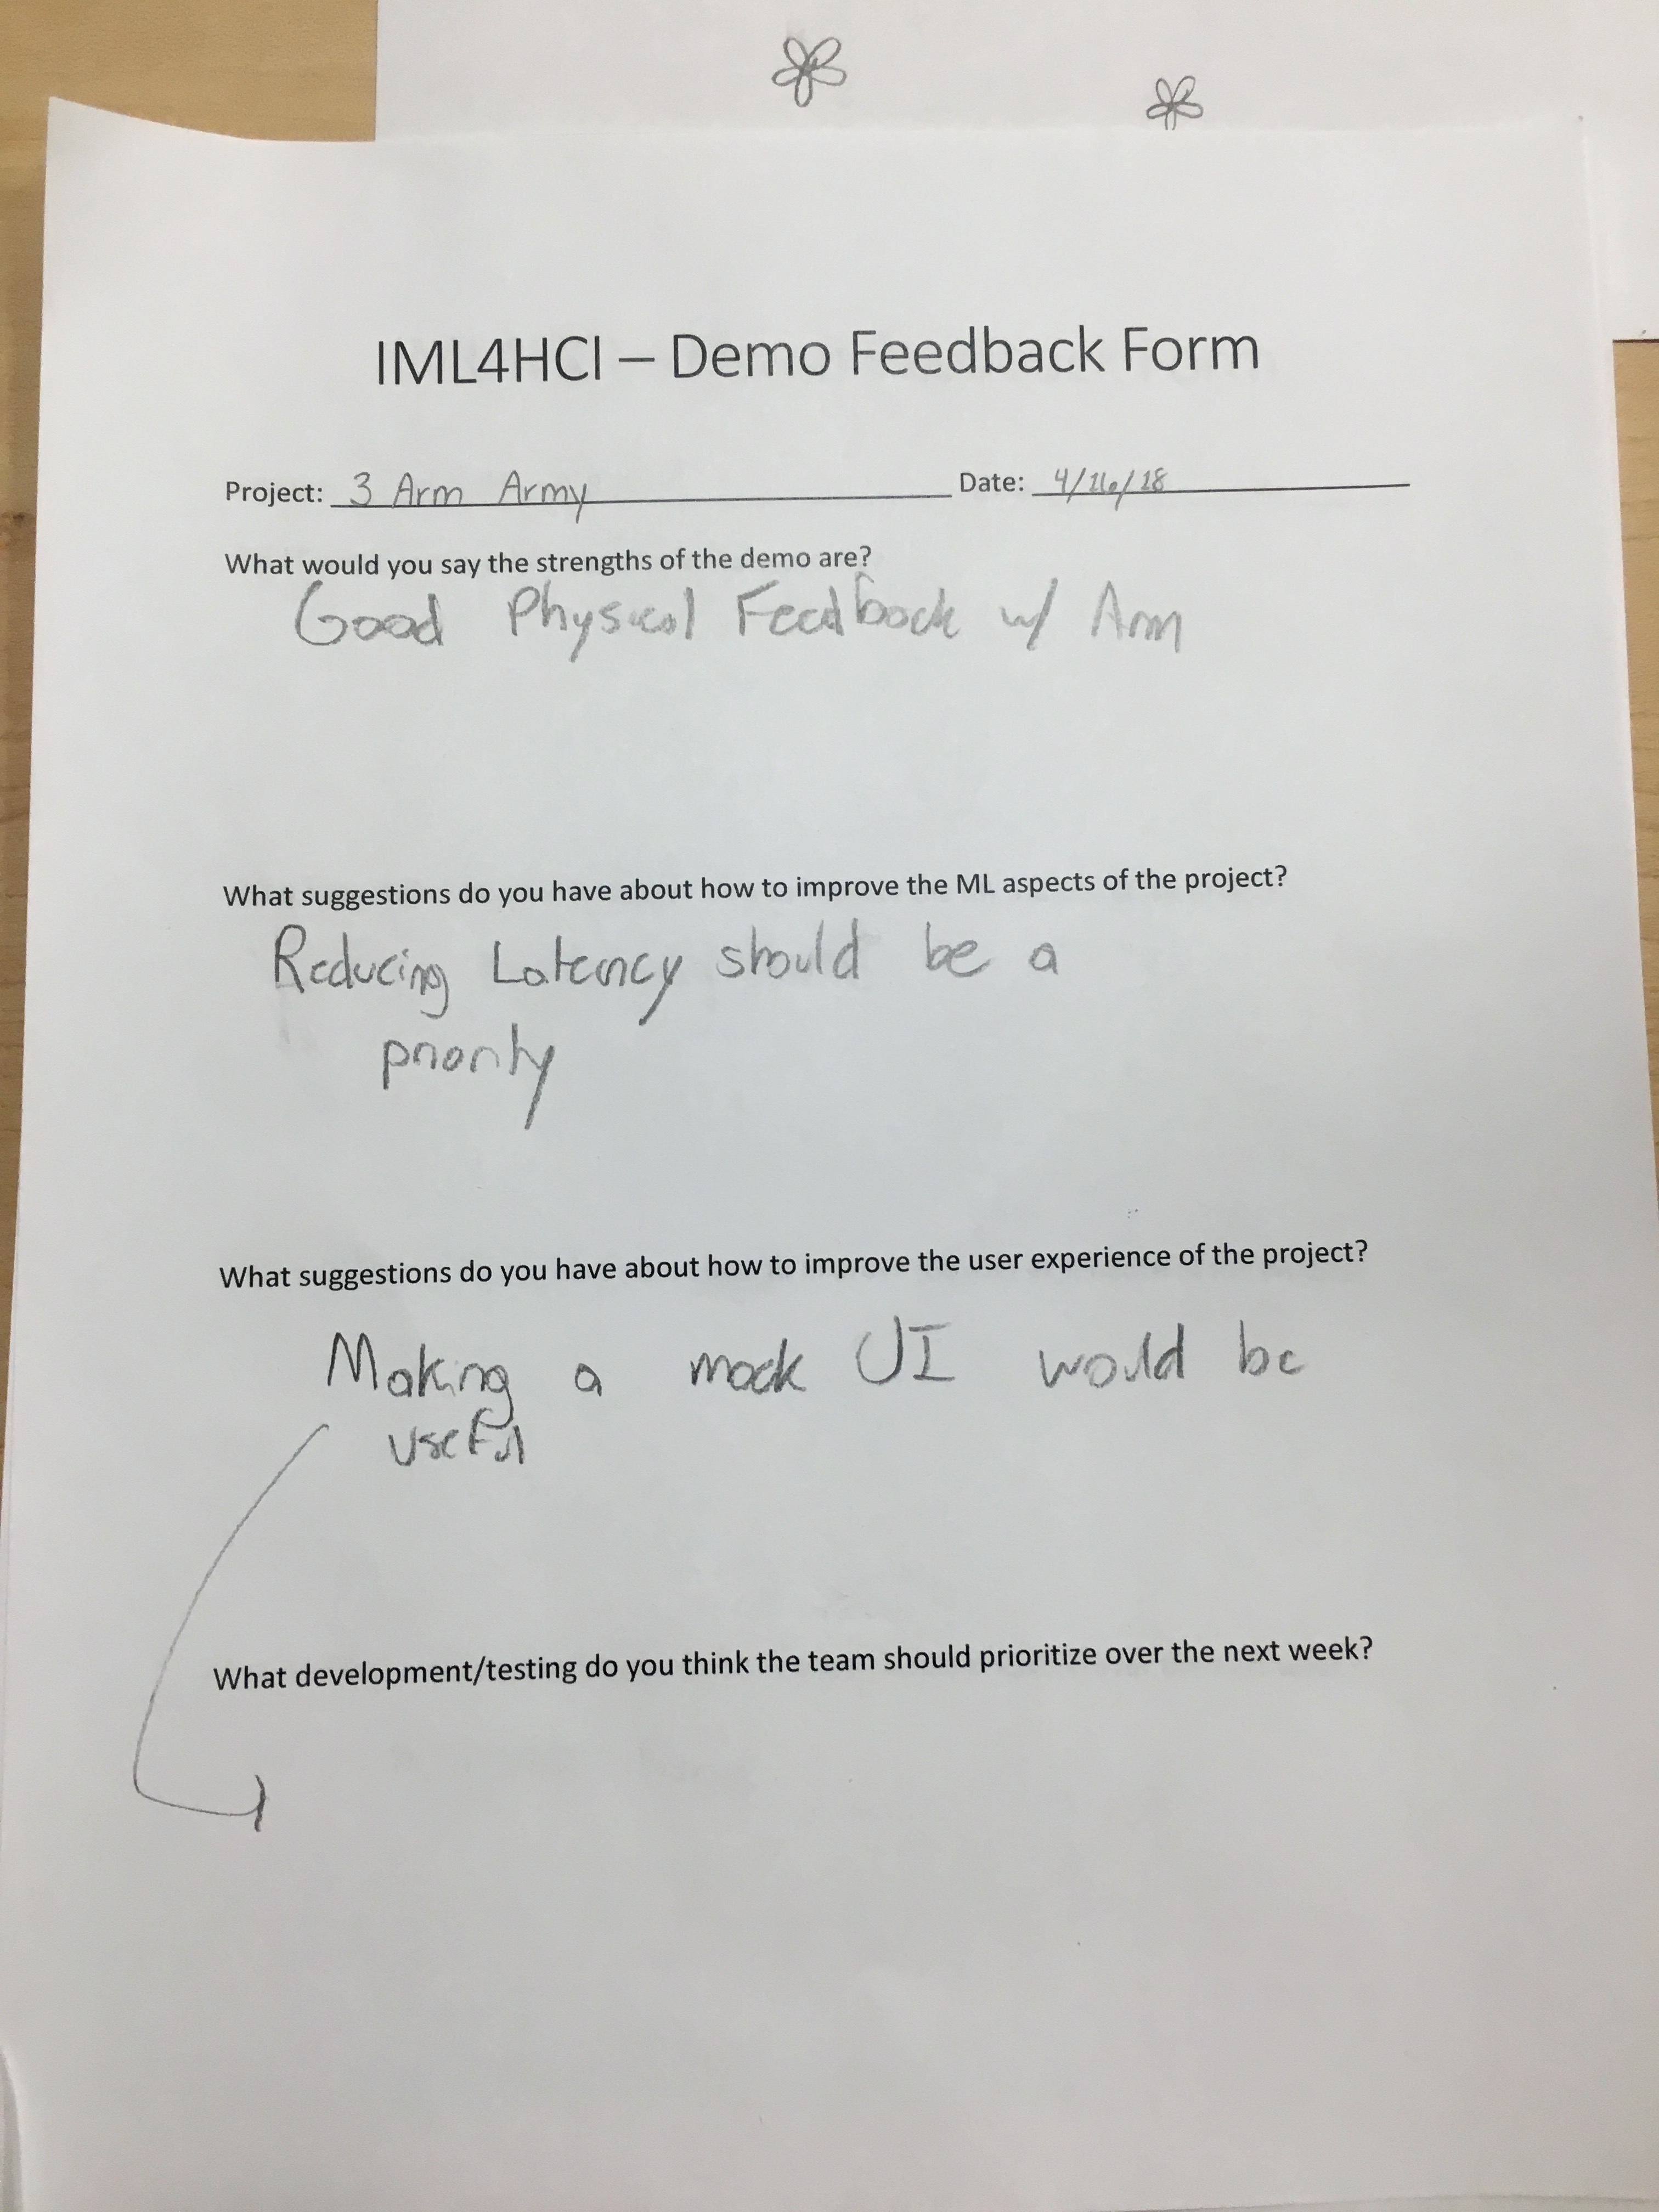 IML4HCI – Demo Feedback Form
Project: 3 Arm Army Date: 4/16/18
What would you say the strengths of the demo are?
Good Physical Feedback w/ Arm
What suggestions do you have about how to improve the ML aspects of the project?
Reducing Latency should be a
priority
What suggestions do you have about how to improve the user experience of the project?
Making a mock UI would be
useful
What development/testing do you think the team should prioritize over the next week?